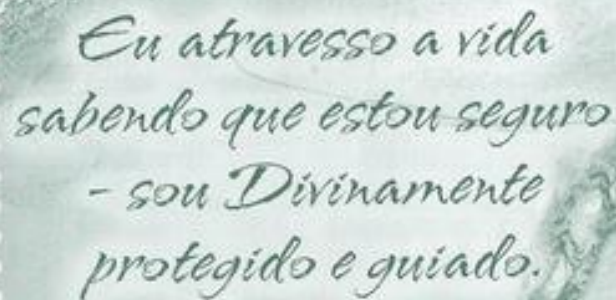 Eu atravesso a vida
sabendo que estou seguro
- sou Divinamente
protegido e guiado.